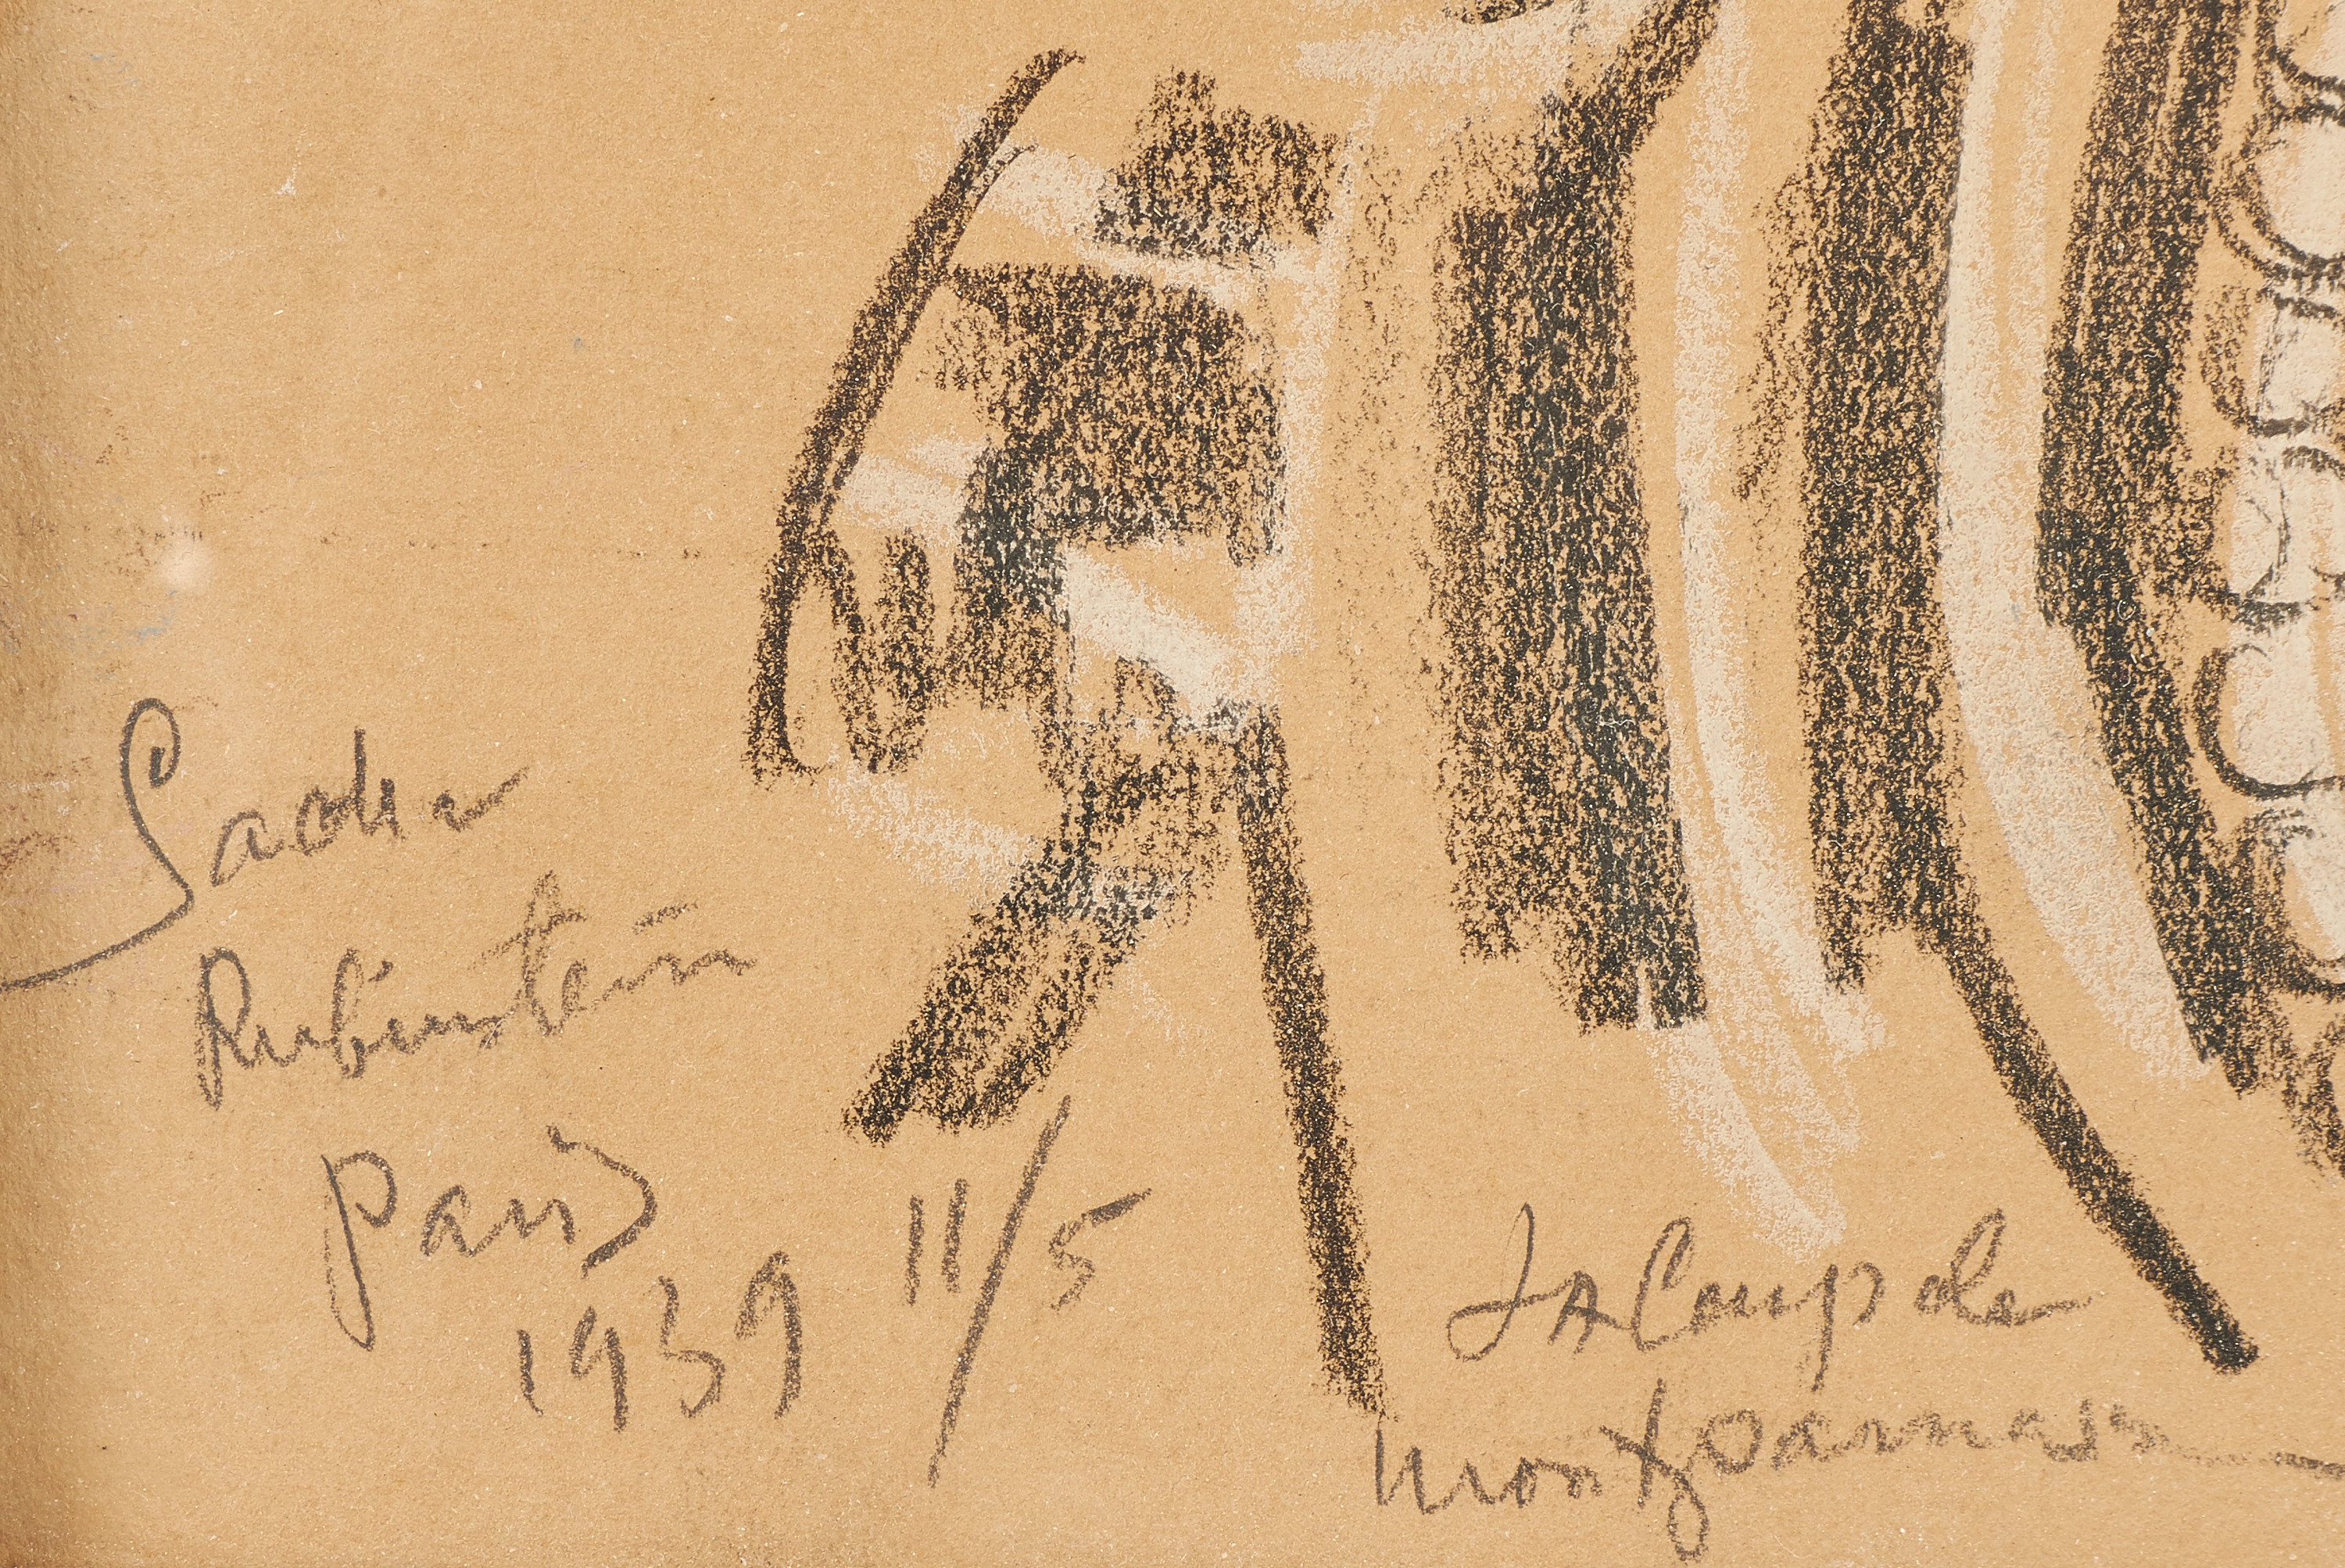 Sacha
Rubinstein
Paris
11/5
1939
La Coupole
Montparnasse